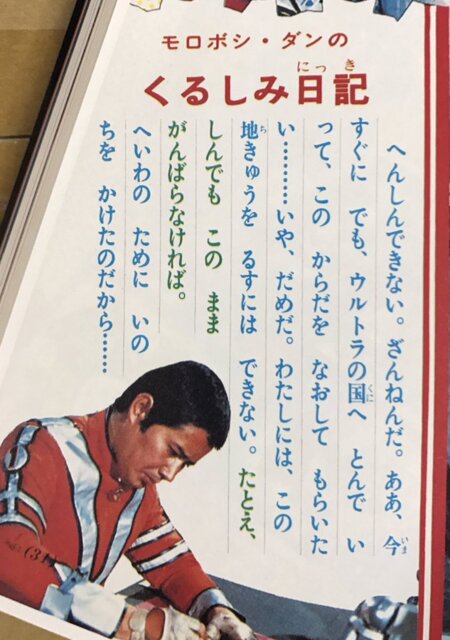 モロボシ・ダンの
くるしみ日記
にっき
へんしんできない。ざんねんだ。ああ、今
いま
すぐに でも、ウルトラの国へ とんで い
くに
って、この からだを なおして もらいた
い………いや、だめだ。わたしには、この
地きゅうを るすには できない。たとえ、
ち
しんでも この まま
がんばらなければ。
へいわの ために いの
ちを かけたのだから……